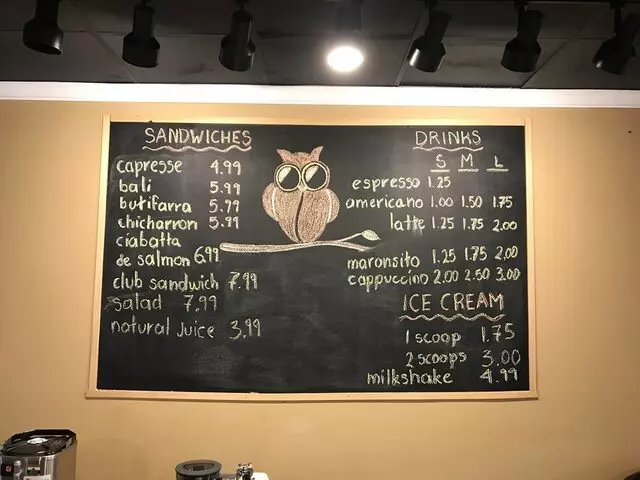 SANDWICHES
capresse 4.99
bali 5.99
butifarra 5.99
chicharron 5.99
ciabatta
de salmon 6.99
club sandwich 7.99
salad 7.99
natural Juice 3.99
DRINKS
S M L
espresso 1.25
americano 1.00 1.50 1.75
latte 1.25 1.75 2.00
maronsito 1.25 1.75 2.00
cappuccino 2.00 2.50 3.00
ICE CREAM
1 scoop 1.75
2 scoops 3.00
milkshake 4.99